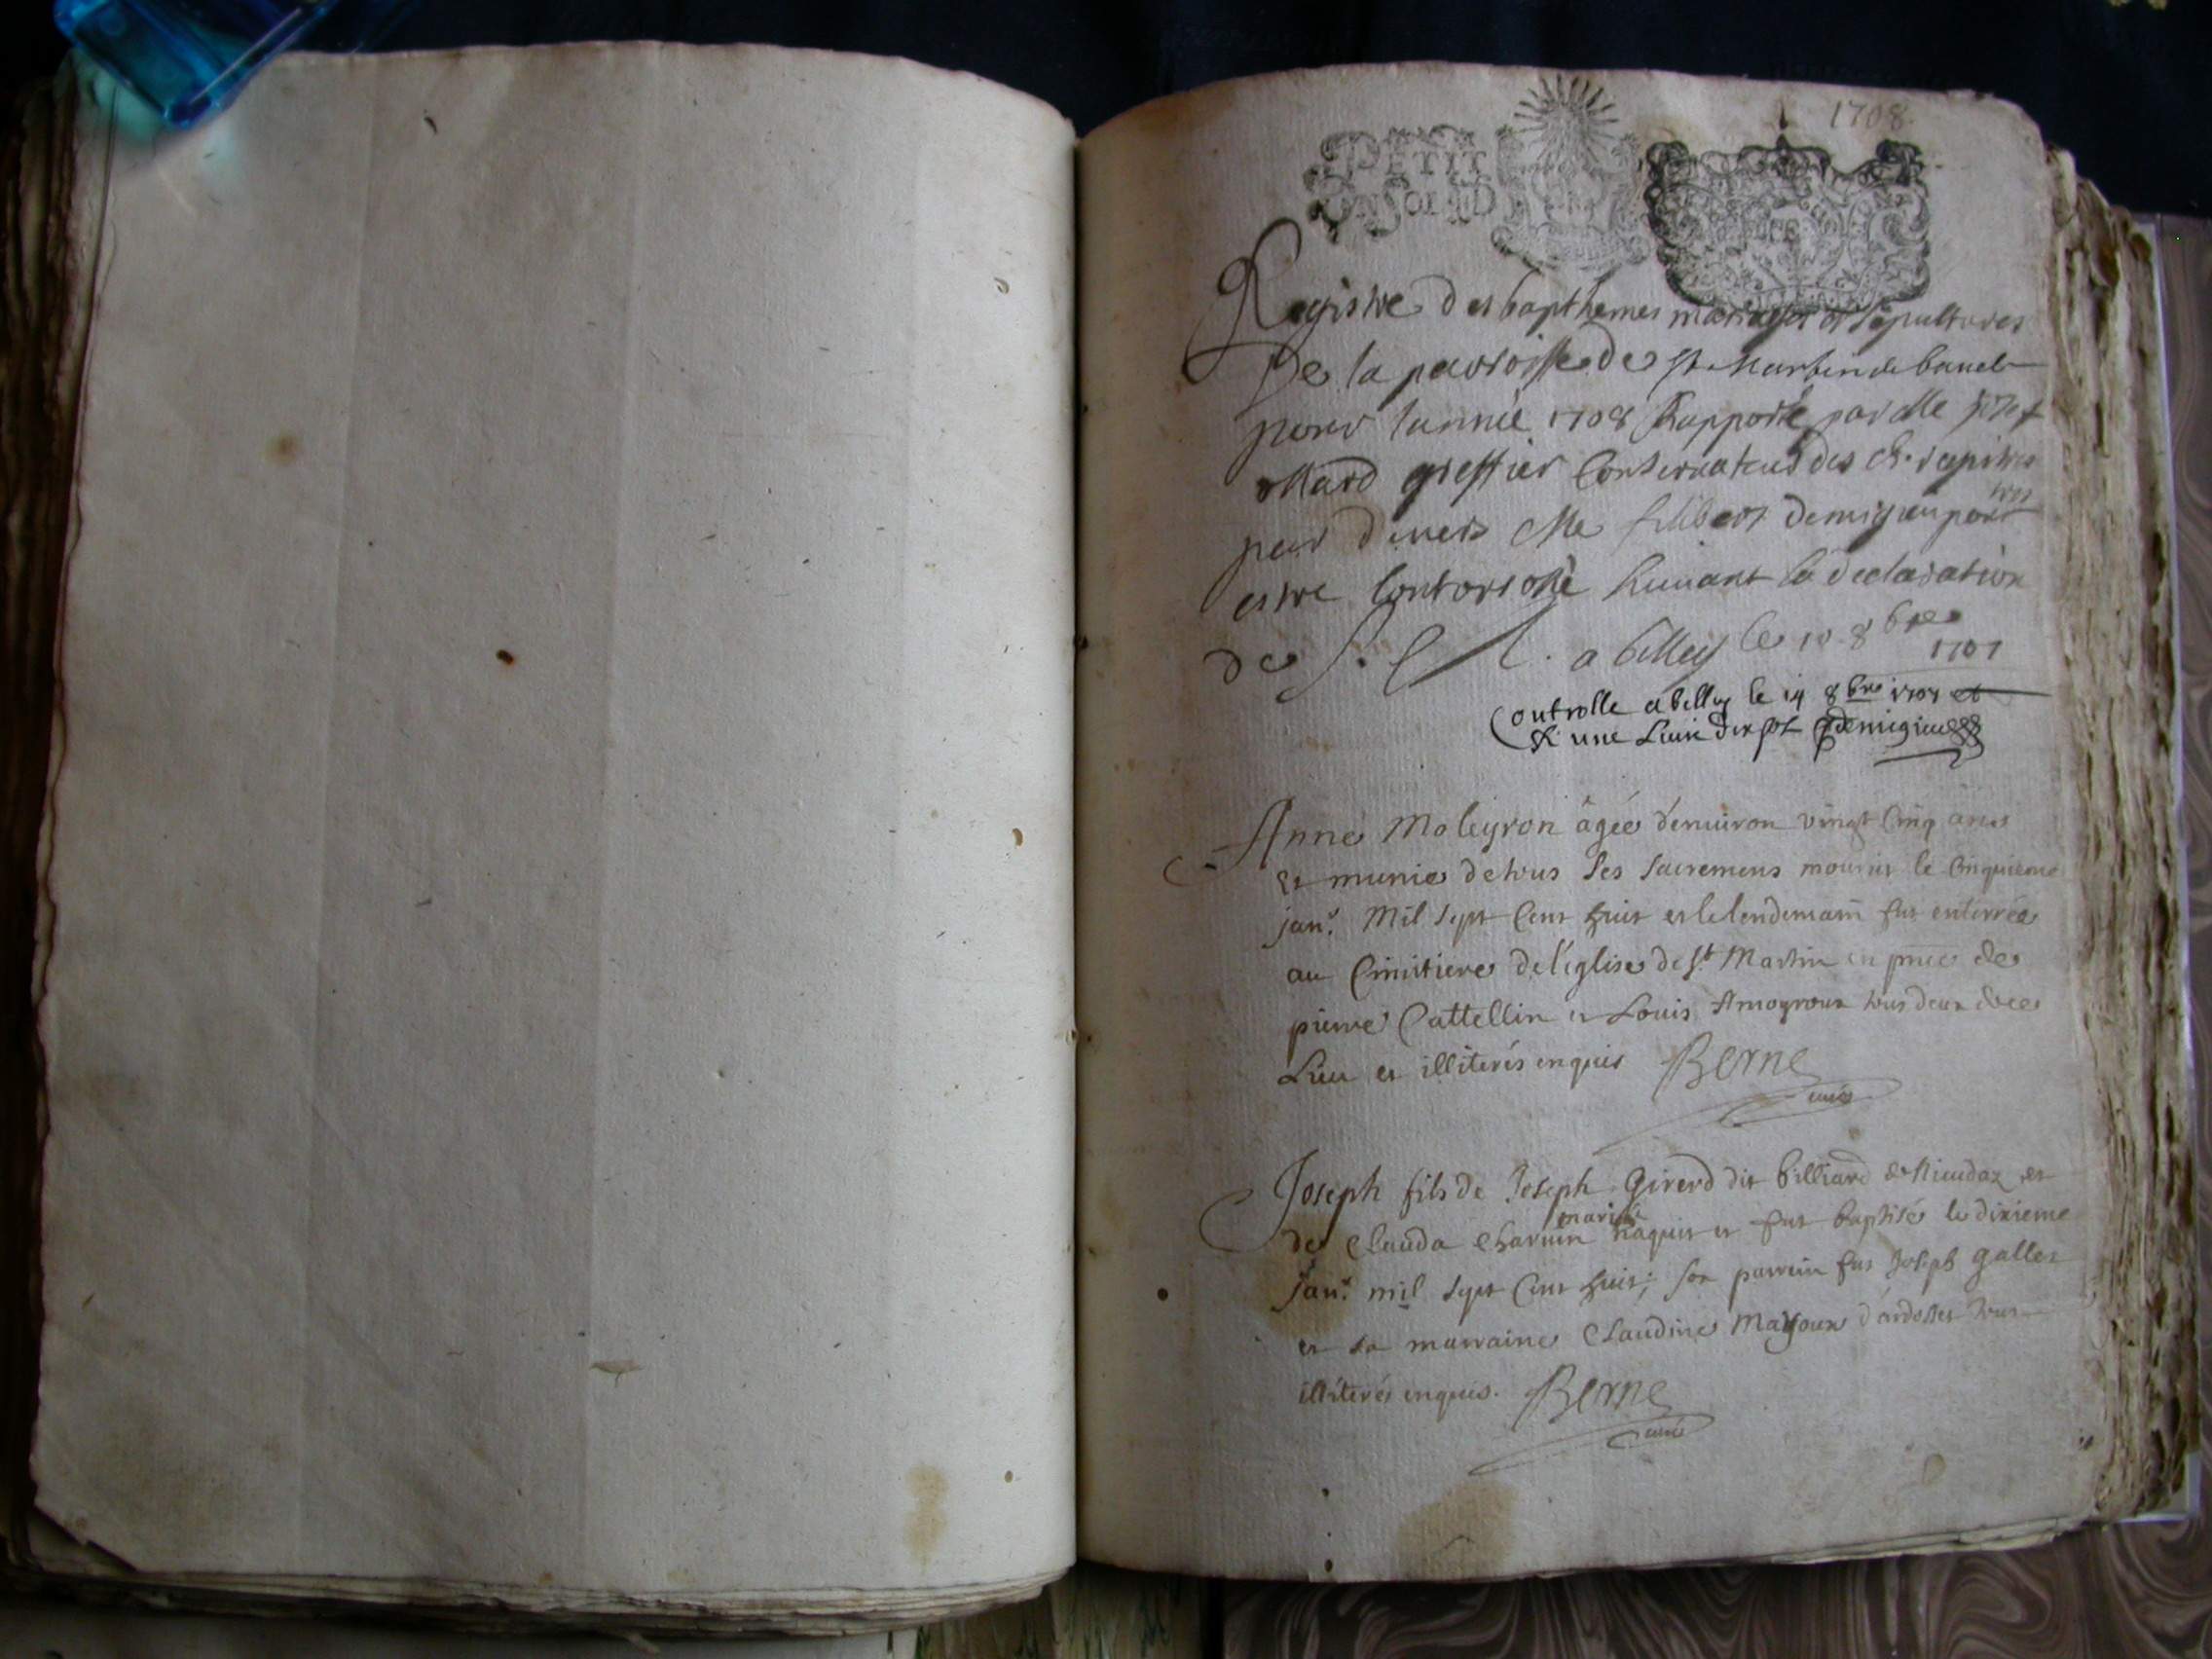 1708.
PETIT
UN SOL IIID
Registre des bapthemes mariages et sepultures
De la parroisse de st Martin de bauel
pour lannée 1708 Rapporté par Me
greffier Conservateur des registres
par devers Me filibert demigieu pour
estre Controrollé suivant la declaration
de a belley le 10 8bre
1707
Controlle a belley le 14 8bre 1707
R une Livre dix sol Demigieu
Anne Moleyron âgée d'enuiron vingt Cinq ans
et munie de tous ses sacremens mourut le Cinquieme
janr. Mil sept Cent huit et le lendemain fut enterrée
au Cimitiere de l'eglise de st Martin en pnce de
pierre Cattellin et Louis Amoyroux tous deux dece
Lieu et illiterés enquis Berne
curé
Joseph fils de Joseph Girerd dit billiard de et
mariés
de Clauda Charuin naquit et fut baptisé le dixieme
janr. mil sept Cent huit; son parrein fut Joseph gallet
et sa marraine Claudine Mayoux d'ardosset tous
illiterés enquis. Berne
curé